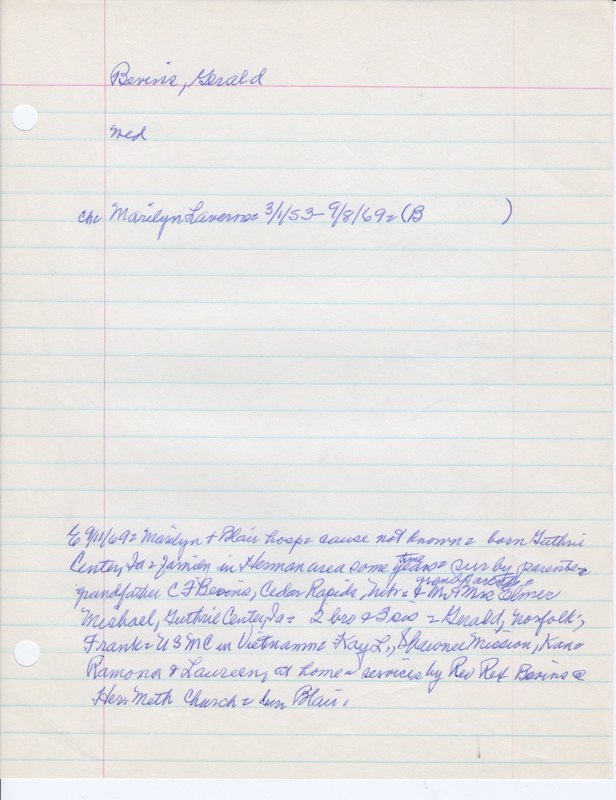 Bevins, Gerald
Wed
ch= Marilyn Laverna= 3/1/53- 9/8/69= (B )
E 9/11/69= Marilyn + Blair hosp= cause not known= born Guthrie
Center, Ia= family in Herman area some time = sur by parents=
grandfather C F Bevins, Cedar Rapids, Nebr= grandparents=
& Mr & Mrs Elmer
Michael, Guthrie Center, Ia= 2 bro & 3 sis = Gerald, Norfolk,
Frank= USMC in Vietnam= Kay L., Shawnee Mission, Kan=
Ramona & Laureen, at home= services by Rev Rex Bevins @
Her. Meth Church= bur Blair.